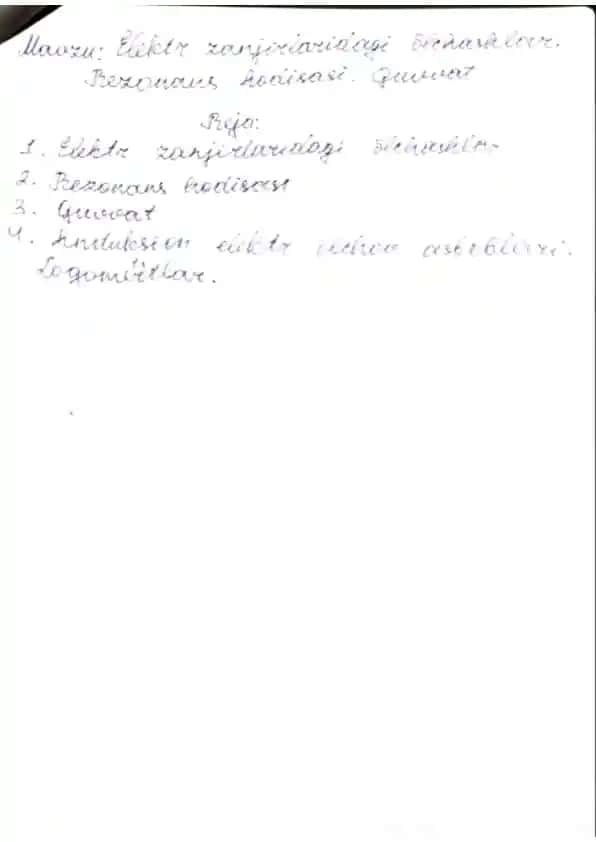 Mavzu: Elektr zanjirlaridagi o'lchashlar.
Rezonans hodisasi. Quvvat
Reja:
1. Elektr zanjirlaridagi o'lchashlar
2. Rezonans hodisasi
3. Quvvat
4. Induksion elektr o'lchov asboblari.
Logometrlar.